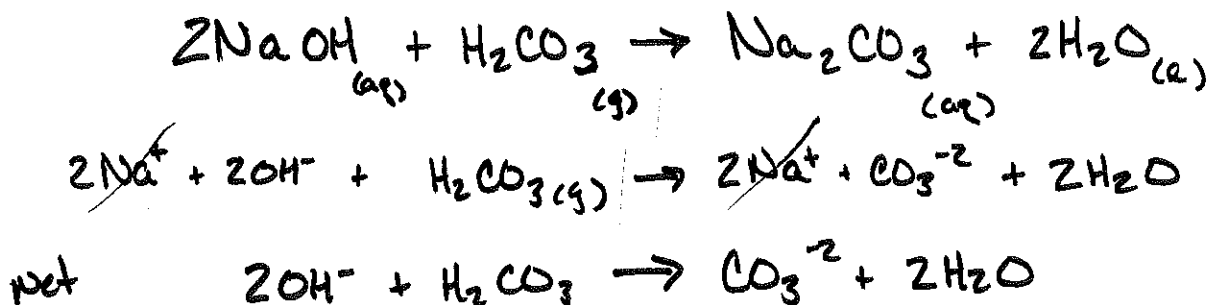 2NaOH(aq) + H₂CO₃(g) → Na₂CO₃(aq) + 2H₂O(l)
2Na⁺ + 2OH⁻ + H₂CO₃(g) → 2Na⁺ + CO₃⁻² + 2H₂O
net 2OH⁻ + H₂CO₃ → CO₃⁻² + 2H₂O